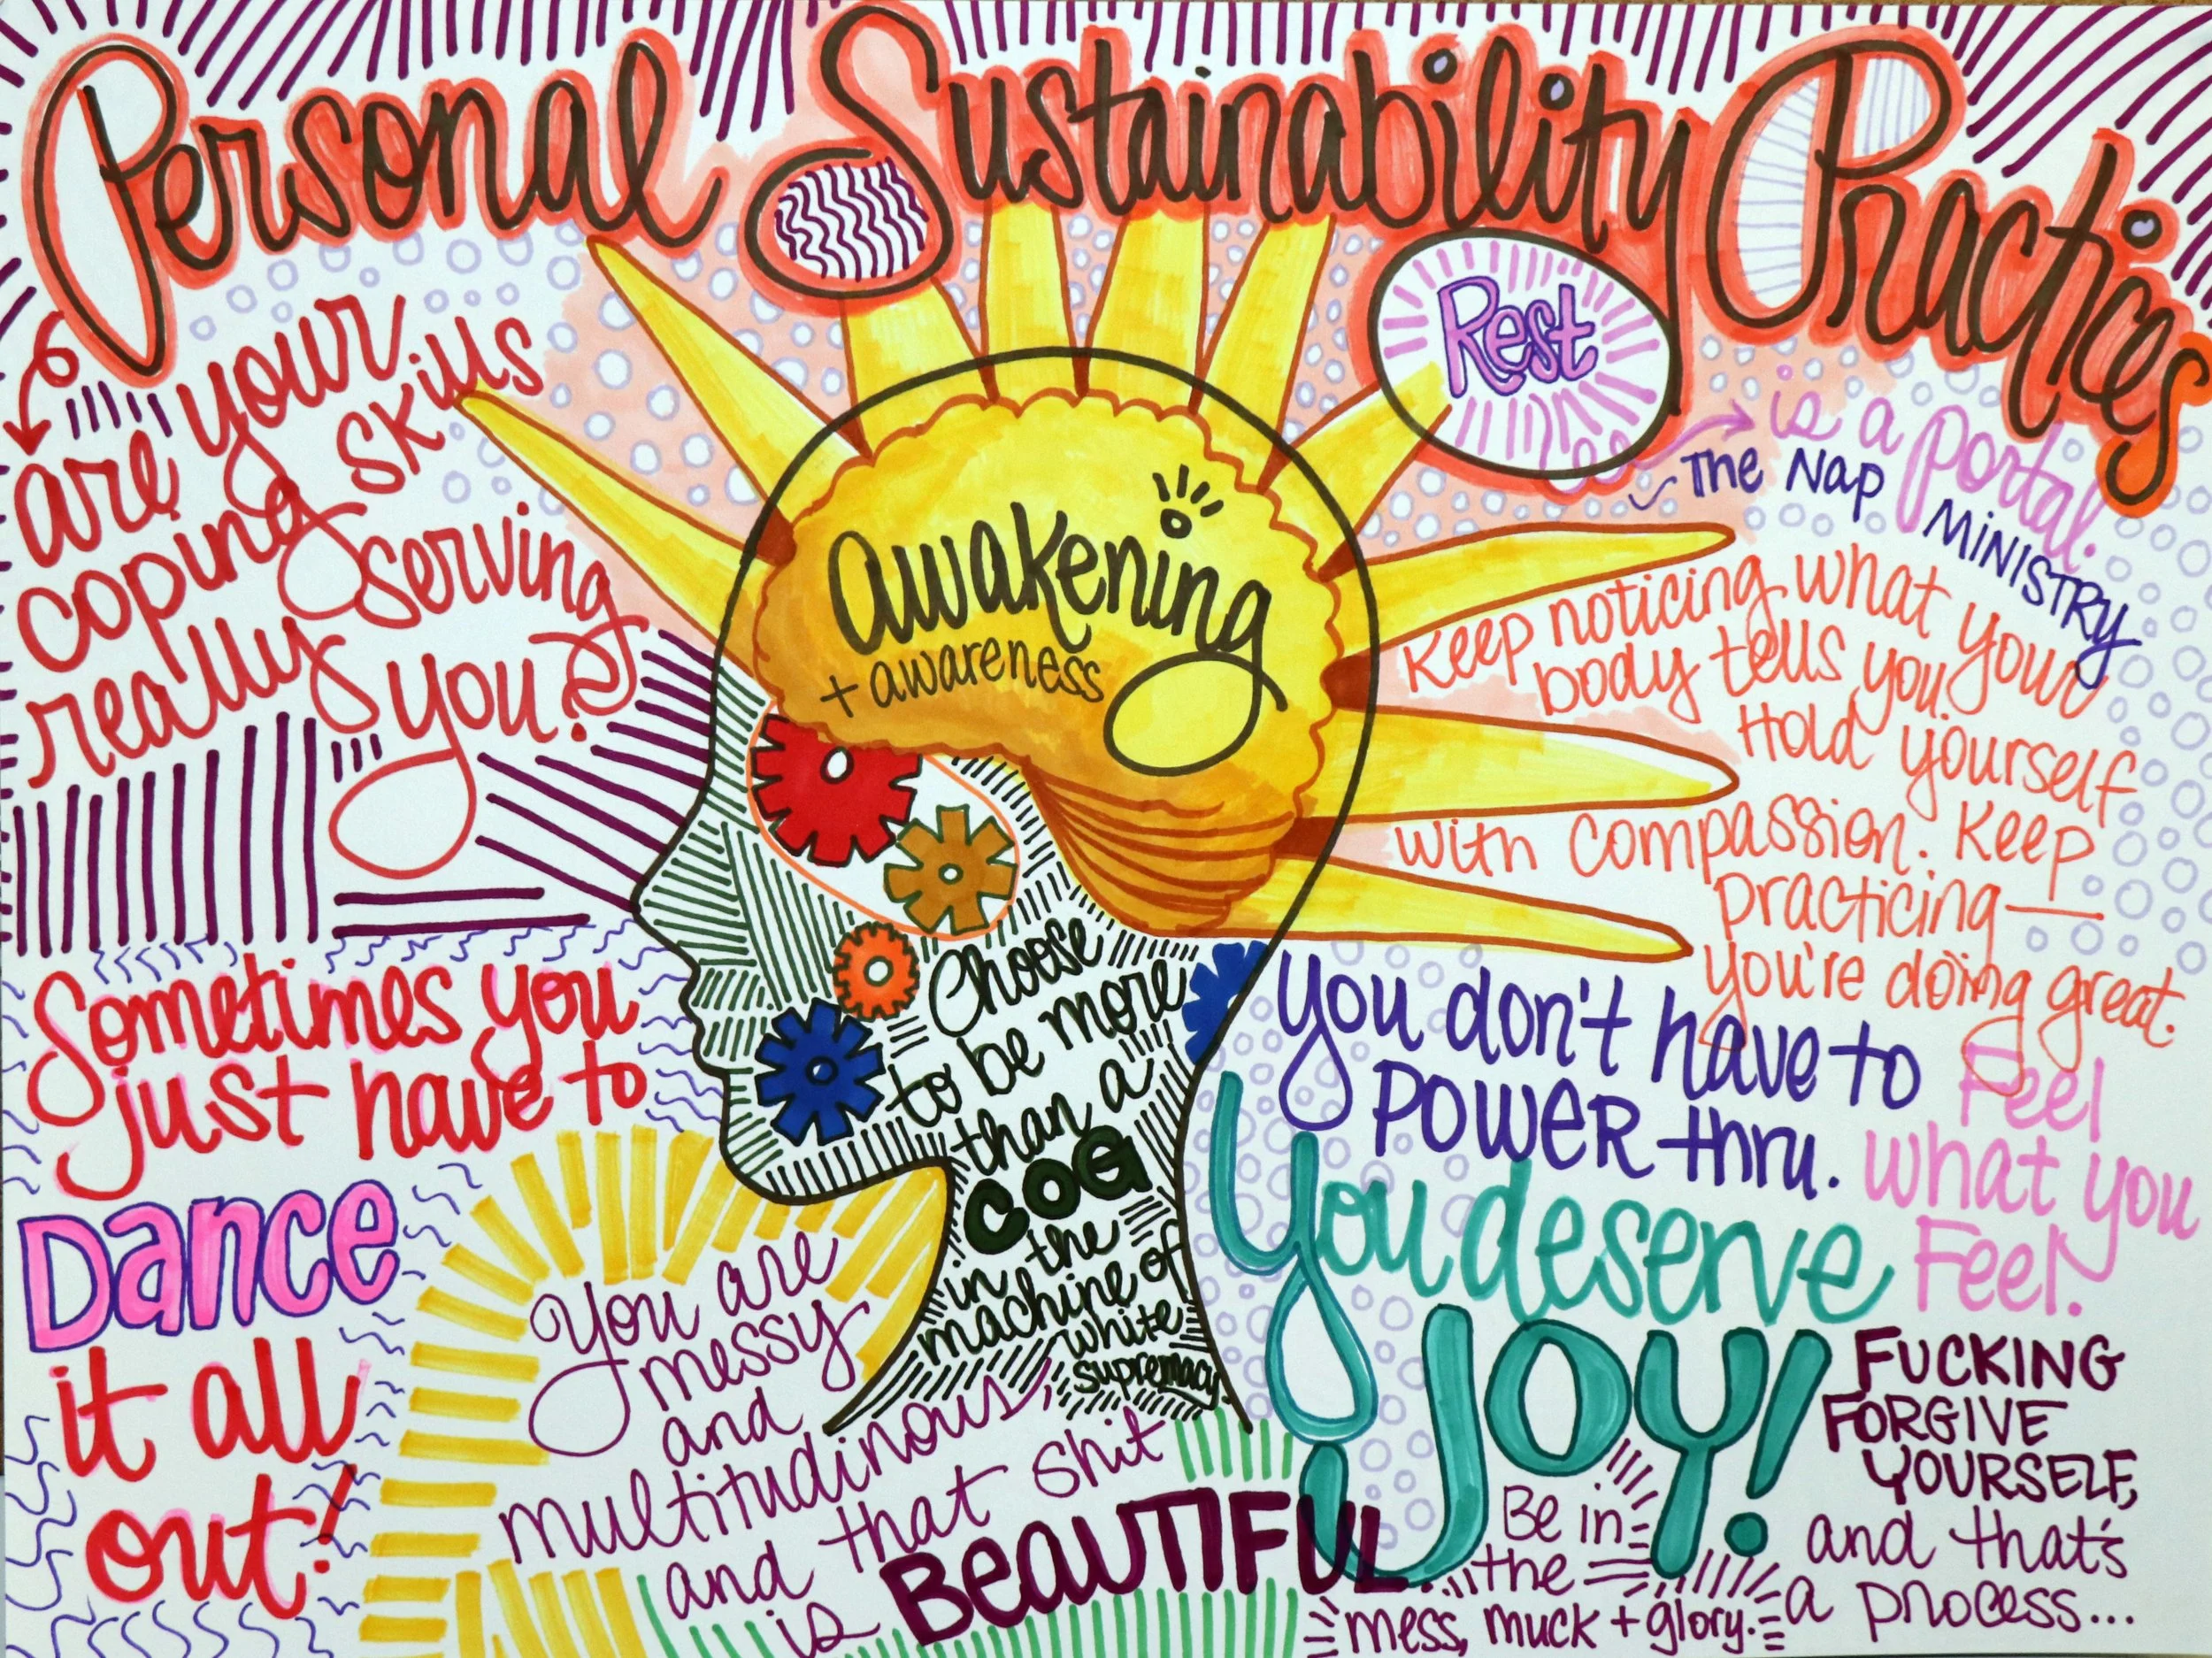 Personal Sustainability Practices
are your
coping skills
really serving
you?
Rest
is a portal.
~ The Nap Ministry
awakening
+ awareness
Keep noticing what your
body tells you.
Hold yourself
with compassion. Keep
practicing—
you're doing great.
Choose
to be more
than a
COG
in the
machine of
white
supremacy.
Sometimes you
just have to
Dance
it all
out!
You don't have to
POWER thru.
Feel
what you
Feel.
You deserve
JOY!
You are
messy
and
multitudinous,
and that shit
is BEAUTIFUL...
Be in
the
mess, muck + glory.
FUCKING
FORGIVE
YOURSELF,
and that's
a process...